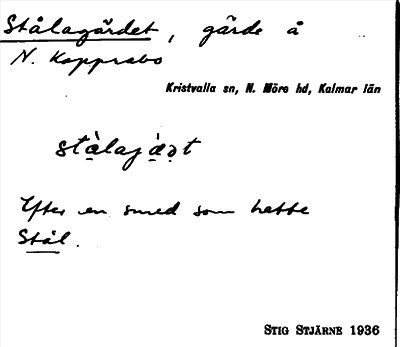 Stålagärdet, gärde å
N. Kopprabo
Kristvalla sn, N. Möre hd, Kalmar län
Efter en smed som hette
Stål.
STIG STJÄRNE 1936